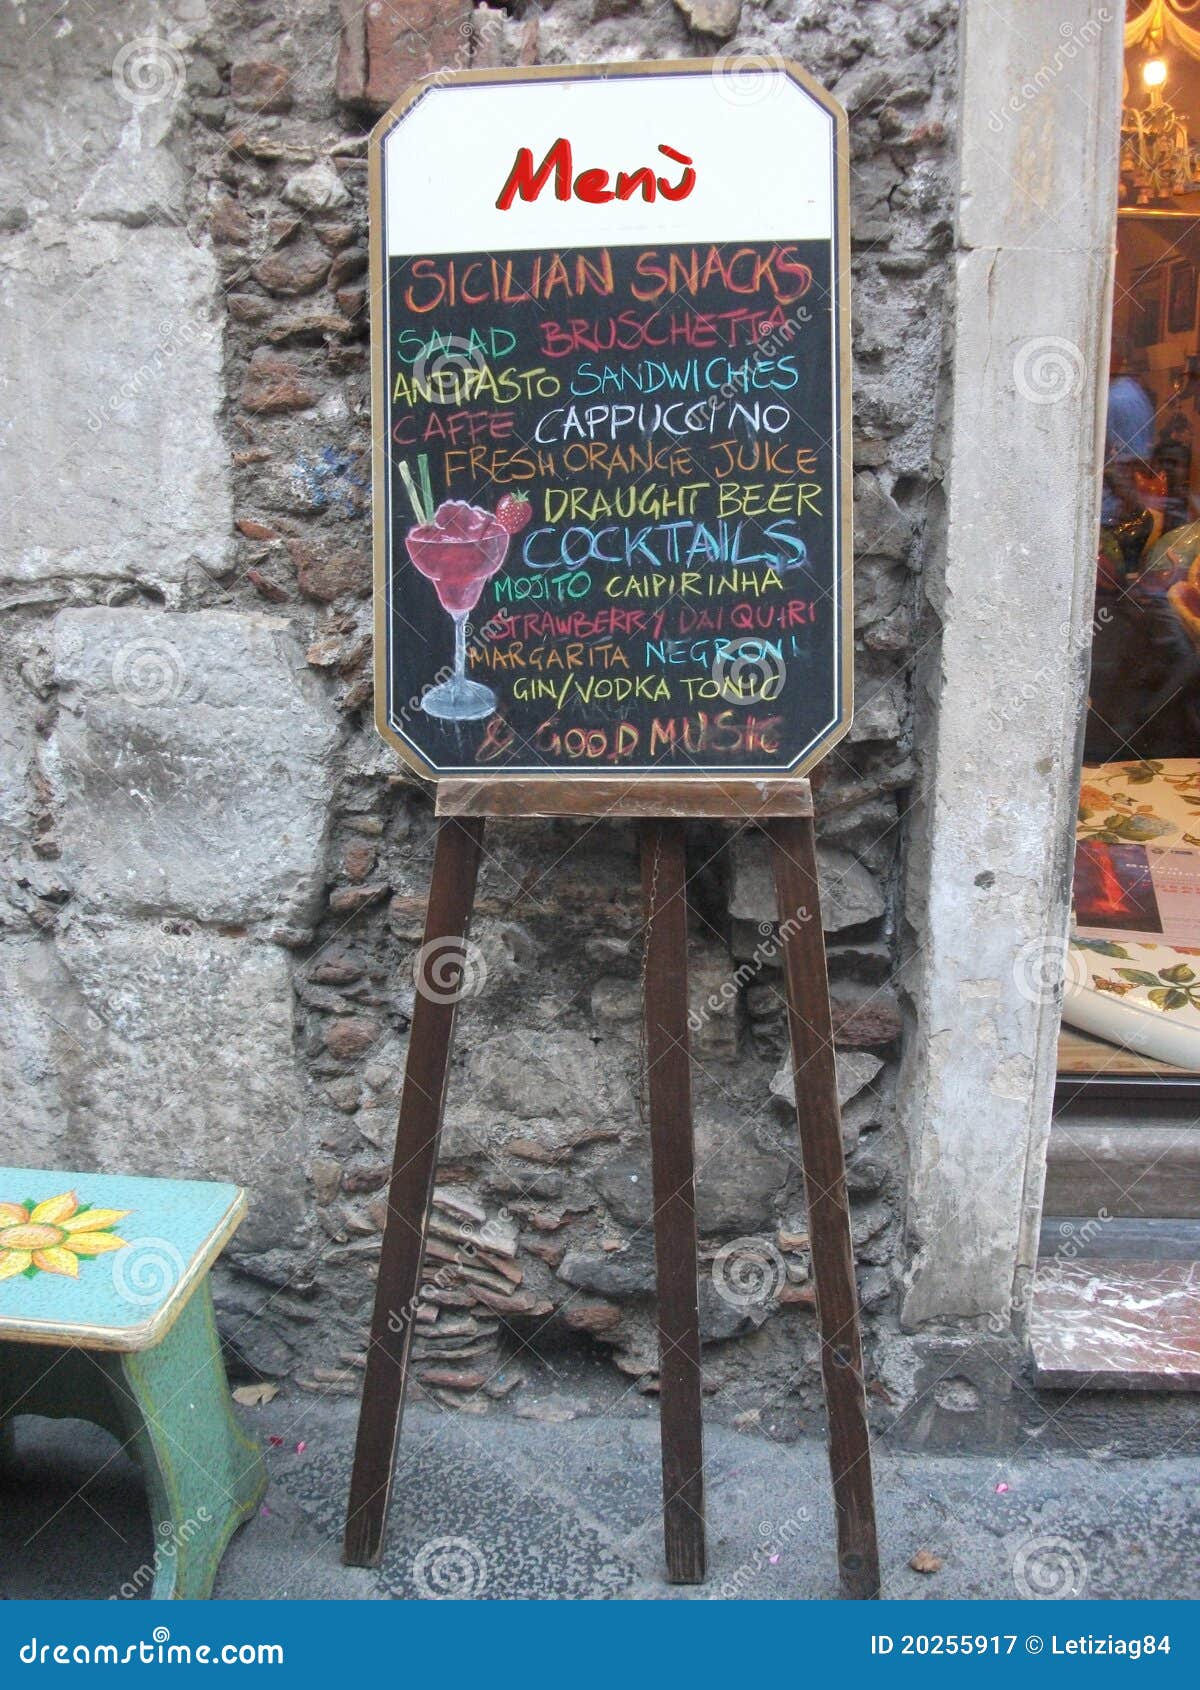 Menù
SICILIAN SNACKS
SALAD BRUSCHETTA
ANTIPASTO SANDWICHES
CAFFE CAPPUCCINO
FRESH ORANGE JUICE
DRAUGHT BEER
COCKTAILS
MOJITO CAIPIRINHA
STRAWBERRY DAIQUIRI
MARGARITA NEGRONI
GIN/VODKA TONIC
& GOOD MUSIC
dreamstime.com
ID 20255917 © Letiziag84